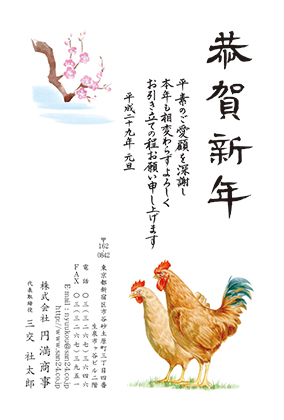 恭賀新年
平素のご愛顧を深謝し
本年も相変わらずよろしく
お引き立ての程お願い申し上げます
平成二十九年 元旦
〒162-0842
東京都新宿区市谷砂土原町三丁目四番
生泉市ヶ谷ビル二階
電話 〇三(三二六七)三九四六
FAX 〇三(三二六七)三九五一
E-mail:nyuukou@san24.co.jp
http://www.san24.co.jp
株式会社 円満商事
代表取締役 三交 社太郎